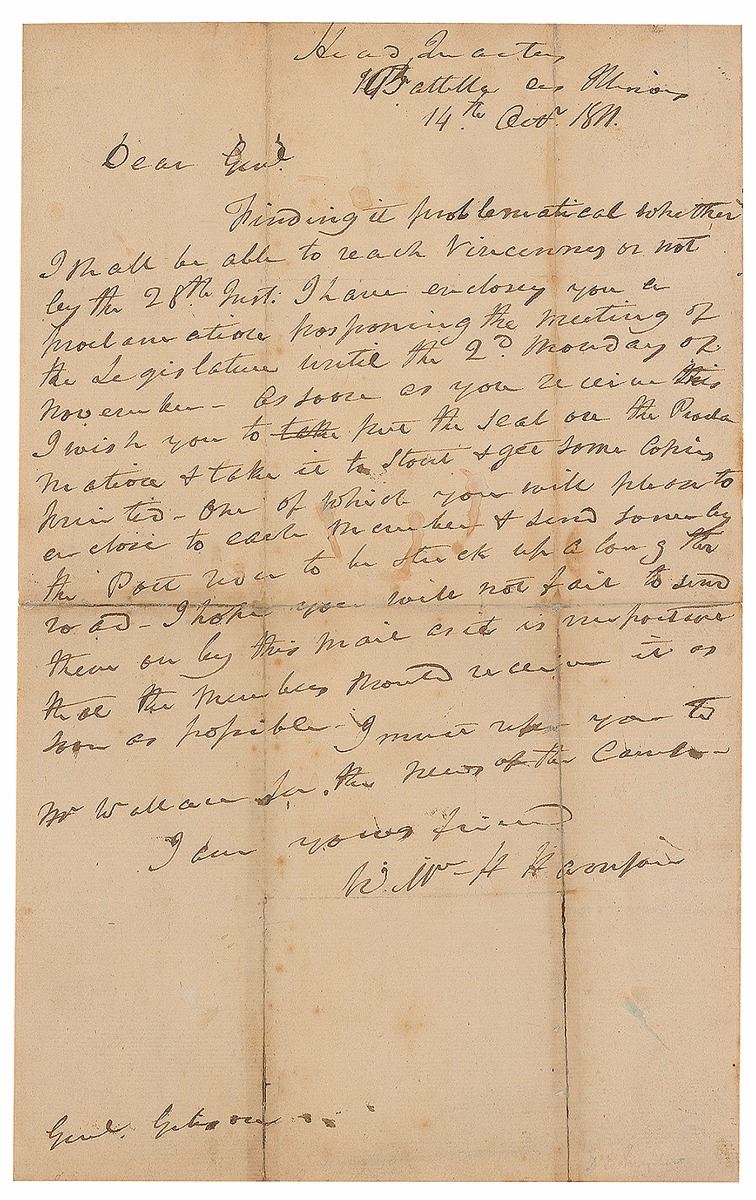 Head Quarters
Battelle des Illinois
14th Octr. 1811.
Dear Genl.
Finding it problematical whether
I shall be able to reach Vincennes or not
by the 28th Inst. I have enclosed you a
proclamation posponing the meeting of
the Legislature until the 2d Monday of
November - as soon as you receive this
I wish you to put the seal on the Procla
mation & take it to Stout & get some Copies
printed - One of which you will please to
enclose to each member & send some by
the Post rider to be stuck up along the
road - I hope you will not fail to send
them on by this mail as it is important
that the members should receive it as
soon as possible - I must refer you to
Mr Wallace for the news of the Camp -
I am your friend
Willm H Harrison
Genl. Gibson